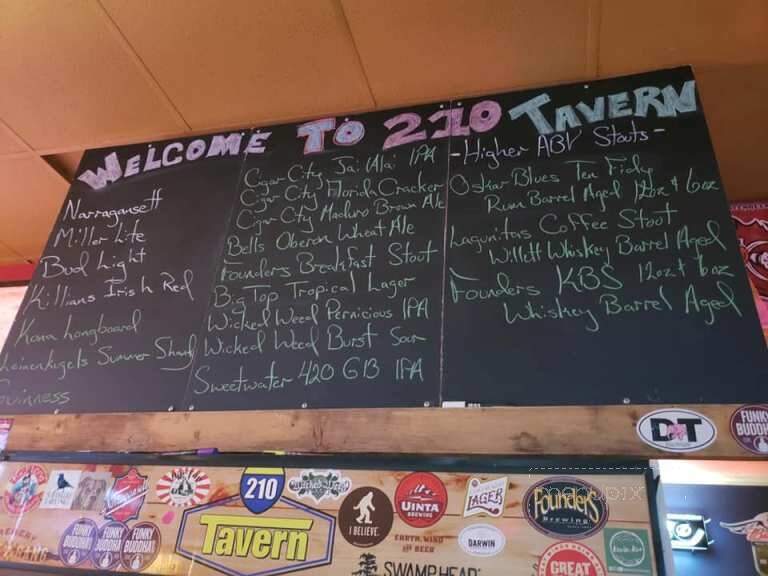 WELCOME TO 210 TAVERN
Narragansett
Miller Lite
Bud Light
Killians Irish Red
Kona Longboard
Leinenkugels Summer Shandy
Guinness
Cigar City Jai Alai IPA
Cigar City Florida Cracker
Cigar City Maduro Brown Ale
Bells Oberon Wheat Ale
Founders Breakfast Stout
Big Top Tropical Lager
Wicked Weed Pernicious IPA
Wicked Weed Burst Sour
Sweetwater 420 G13 IPA
- Higher ABV Stouts -
Oskar Blues Ten Fidy
Rum Barrel Aged 12oz + 6oz
Lagunitas Coffee Stout
Willett Whiskey Barrel Aged
Founders KBS 12oz + 6oz
Whiskey Barrel Aged
FUNKY
BUDDHA
210
Tavern
FUNKY
BUDDHA
FUNKY
BUDDHA
I BELIEVE.
UINTA
BREWING
EARTH, WIND
and BEER
LAGER
DARWIN
Founders
Brewing
SWAMP HEAD
GREAT